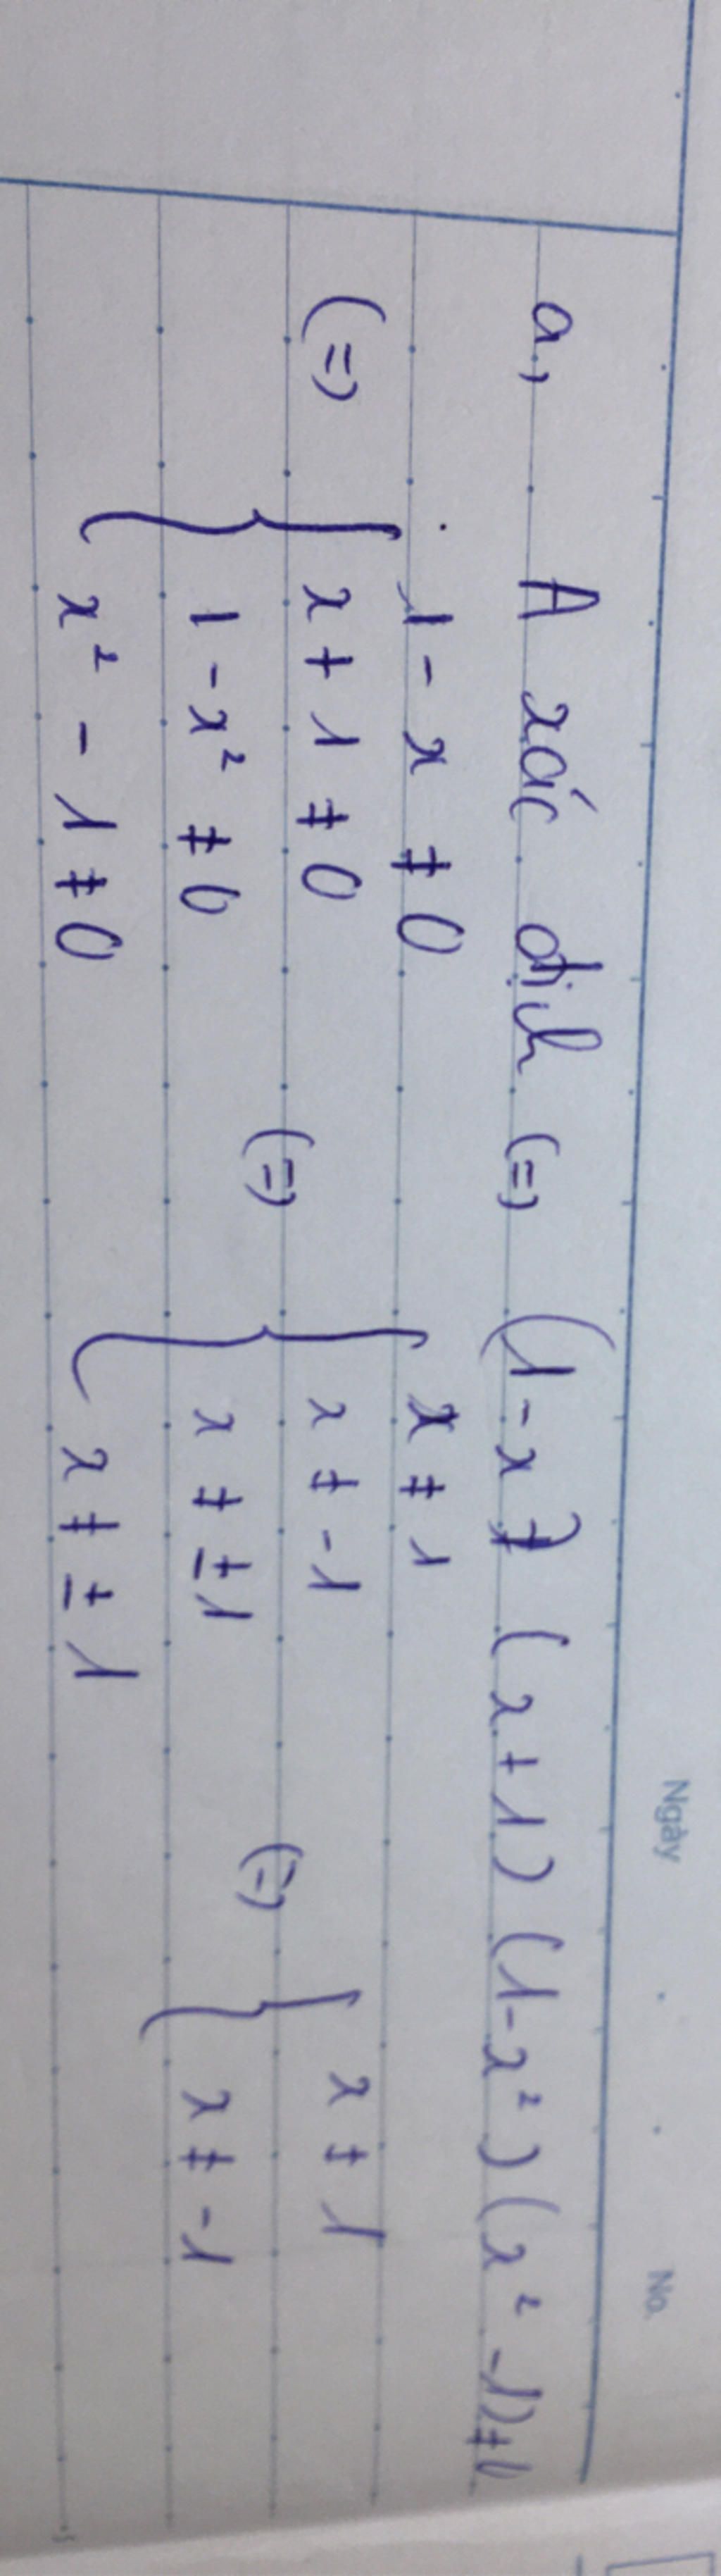 Ngày No.
a, A xác định (=) (1-x) (x+1) (1-x²) (x²-1) ≠ 0
(=) { 1-x ≠ 0 (=) { x ≠ 1 (=) { x ≠ 1
x+1 ≠ 0 x ≠ -1 x ≠ -1
1-x² ≠ 0 x ≠ ±1
x² - 1 ≠ 0 x ≠ ±1